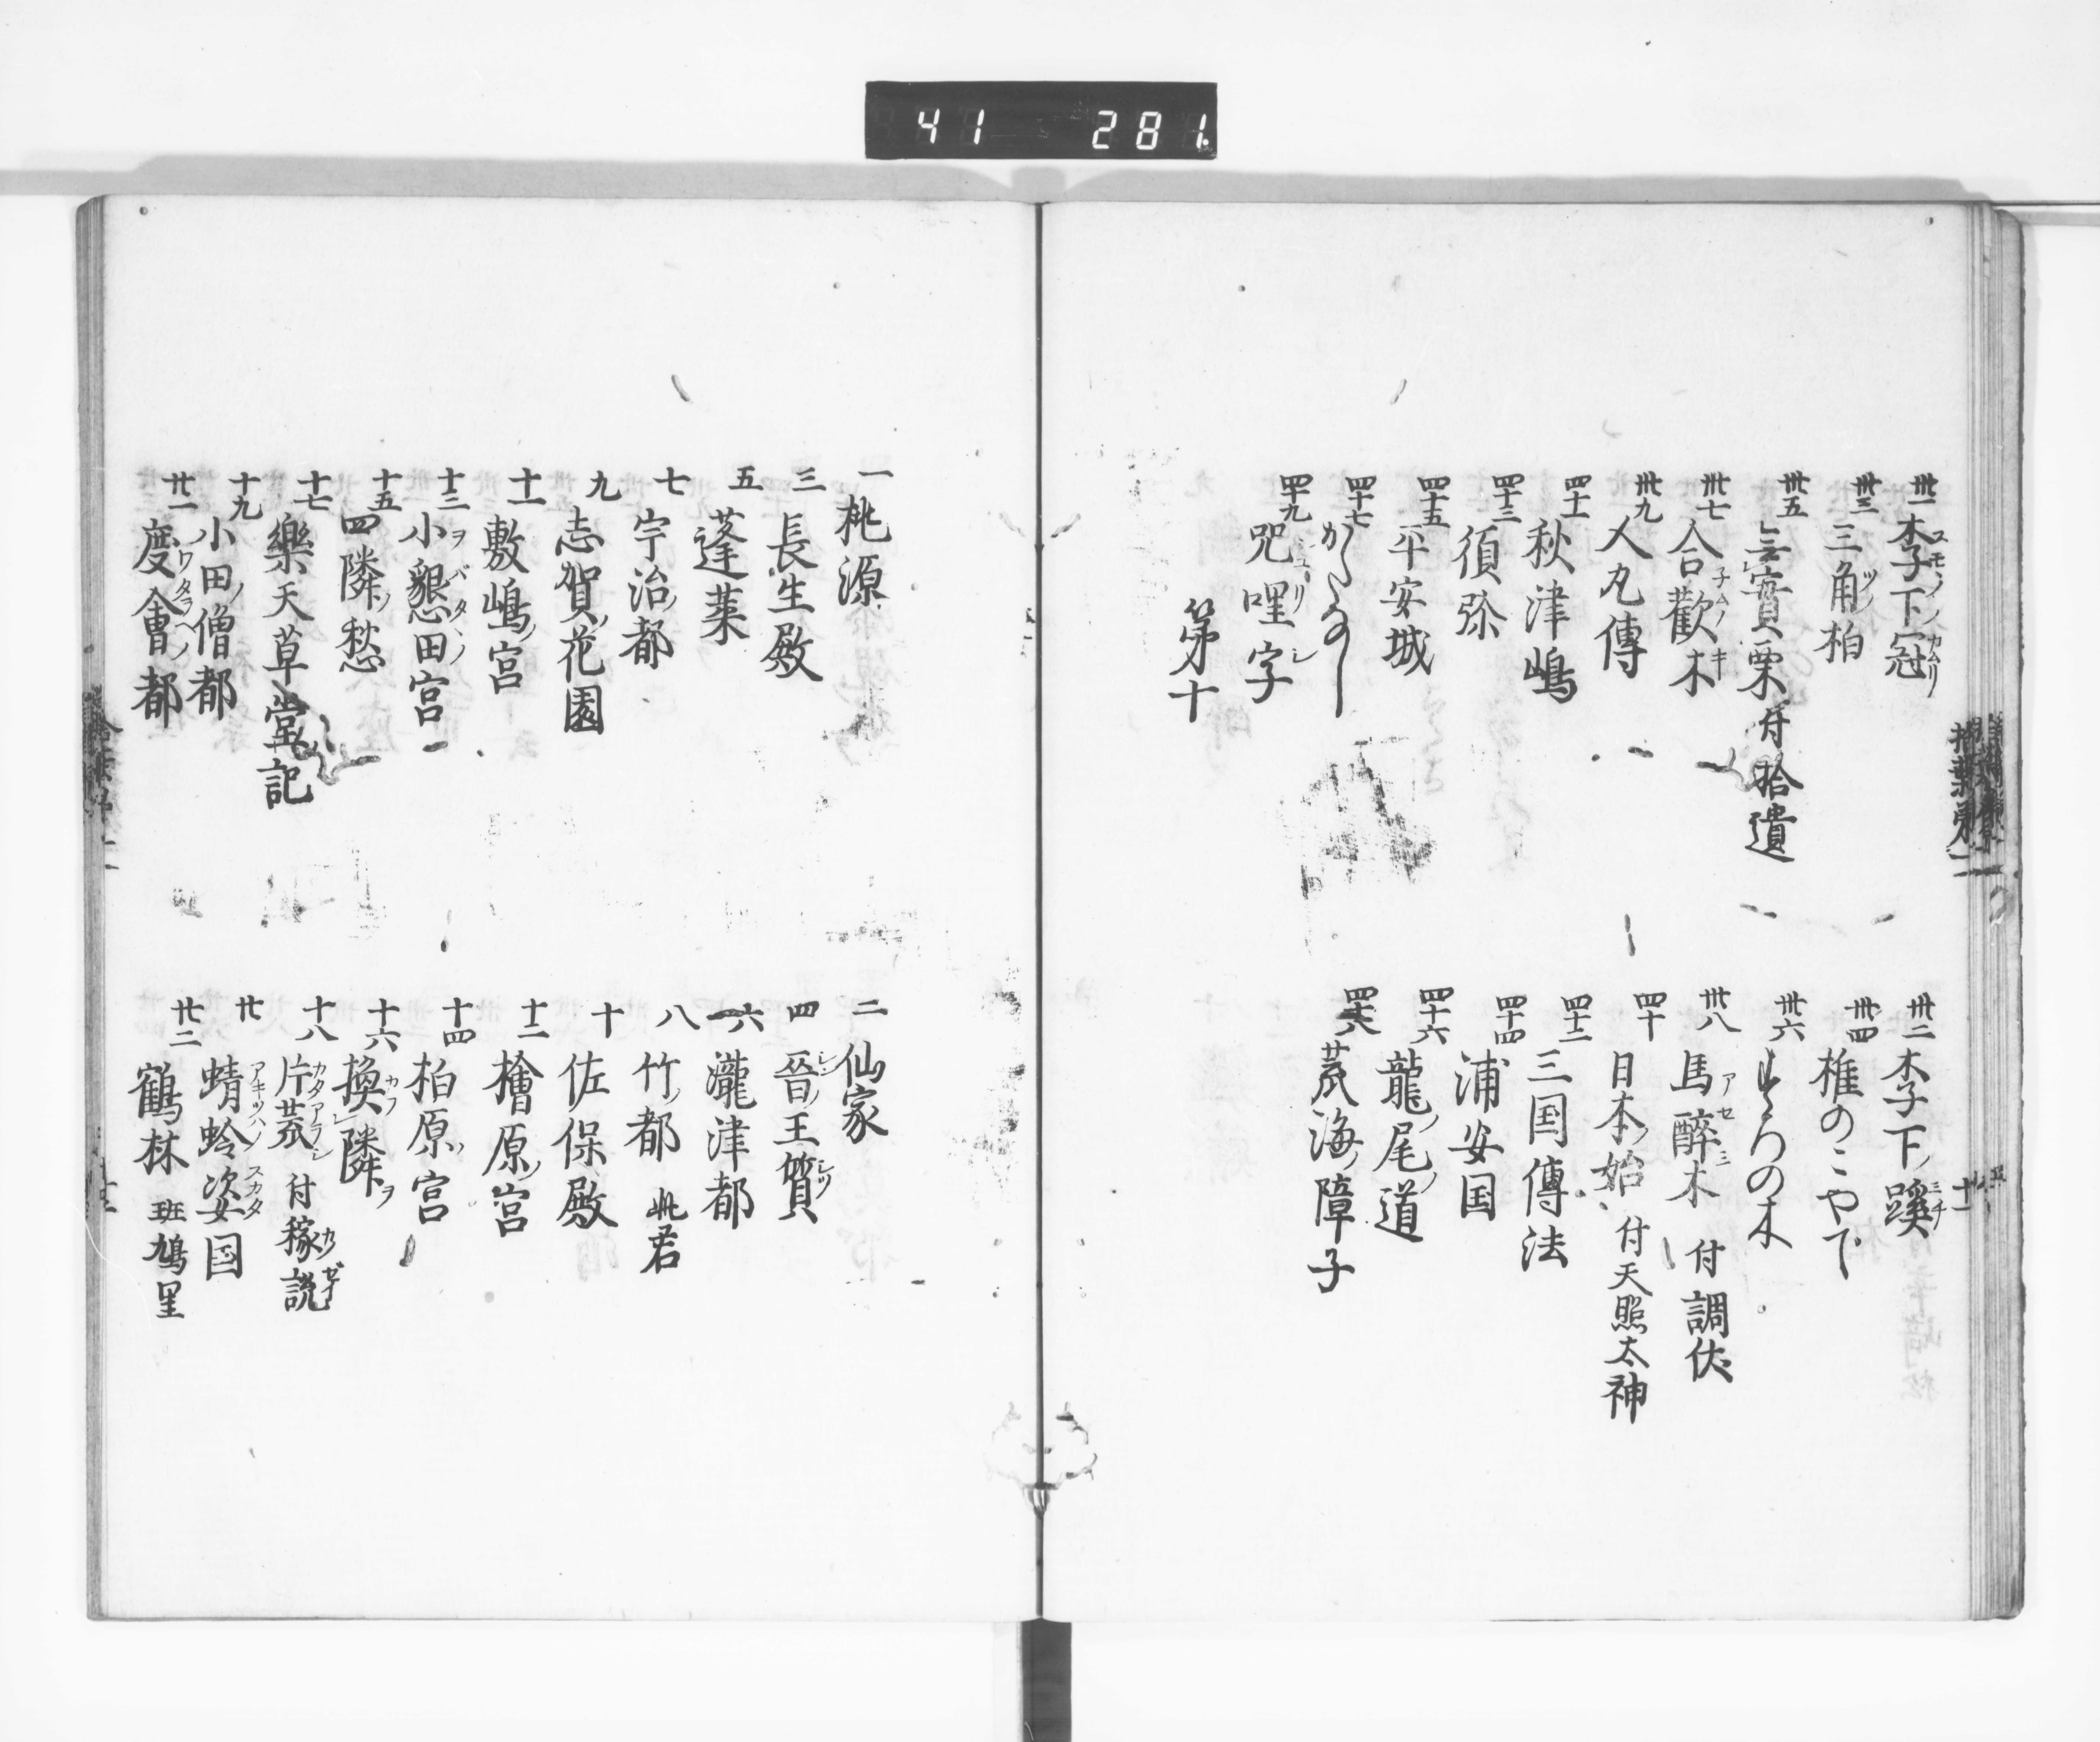 41 281
卅一 李下冠 スモヽノ カムリ
卅二 李下ノ蹊 ミチ
卅三 三角柏 ツノ
卅四 椎のこやで
卅五 無實栗 付拾遺
卅六 の木
卅七 合歡木 子ムノキ
卅八 馬醉木 アセミ 付調伏
卅九 人丸傳
四十 日本ノ始 付天照太神
四十一 秋津嶋
四十二 三国傳法
四十三 須弥
四十四 浦安国
四十五 平安城
四十六 龍ノ尾ノ道
四十七
四十八 荒海ノ障子
四十九 咒哩字
第十
一 桃源
二 仙家
三 長生殿
四 晉ノ王質 シン シツ
五 蓬莱
六 瀧津都
七 宇治ノ都
八 竹ノ都 此君
九 志賀ノ花園
十 佐保殿
十一 敷嶋ノ宮
十二 檜原ノ宮
十三 小懇田宮 ヲバタヽノ
十四 柏原ノ宮
十五 四隣ノ愁
十六 換レ隣ヲ カフ
十七 樂天草堂記
十八 片荒 カタアラシ 付稼説 カ ゼイ
十九 小田ノ僧都
廿 蜻蛉姿国 アキツハノ スカタ
廿一 度會都 ワタラヘノ
廿二 鶴林 班鳩里